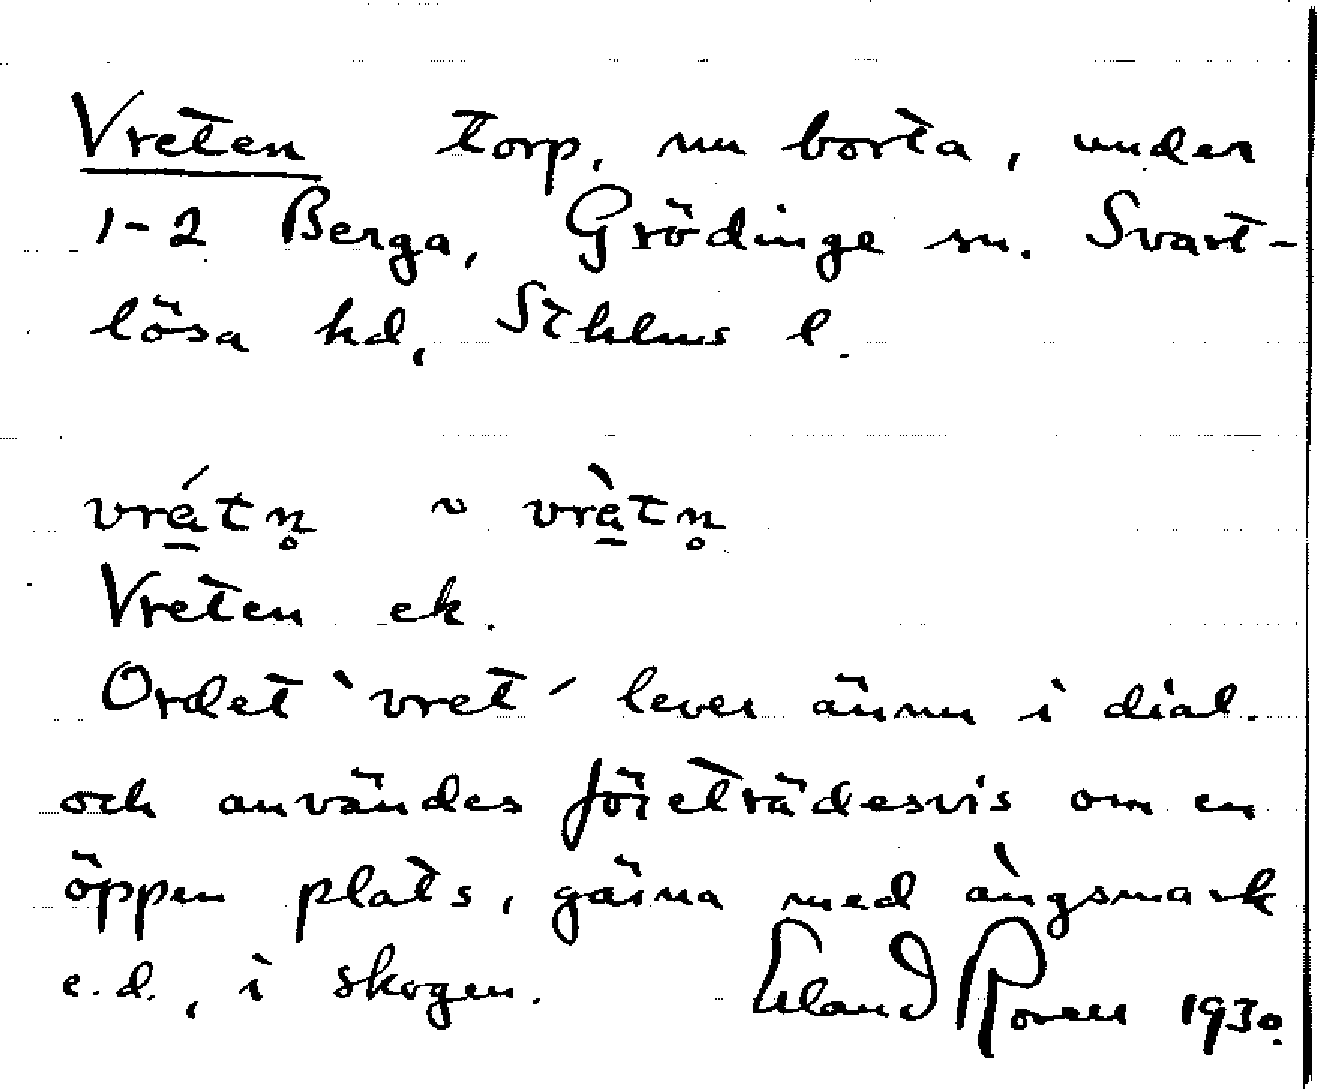 Vreten torp, nu borta, under
1-2 Berga, Grödinge sn. Svart-
lösa hd, Sthlms l.
vrá̱tn̥ ~ vrà̱tn̥
Vreten ek.
Ordet `vret´ lever ännu i dial.
och användes företrädesvis om en
öppen plats, gärna med ängsmark
e.d., i skogen. Erland Rosell 1930.